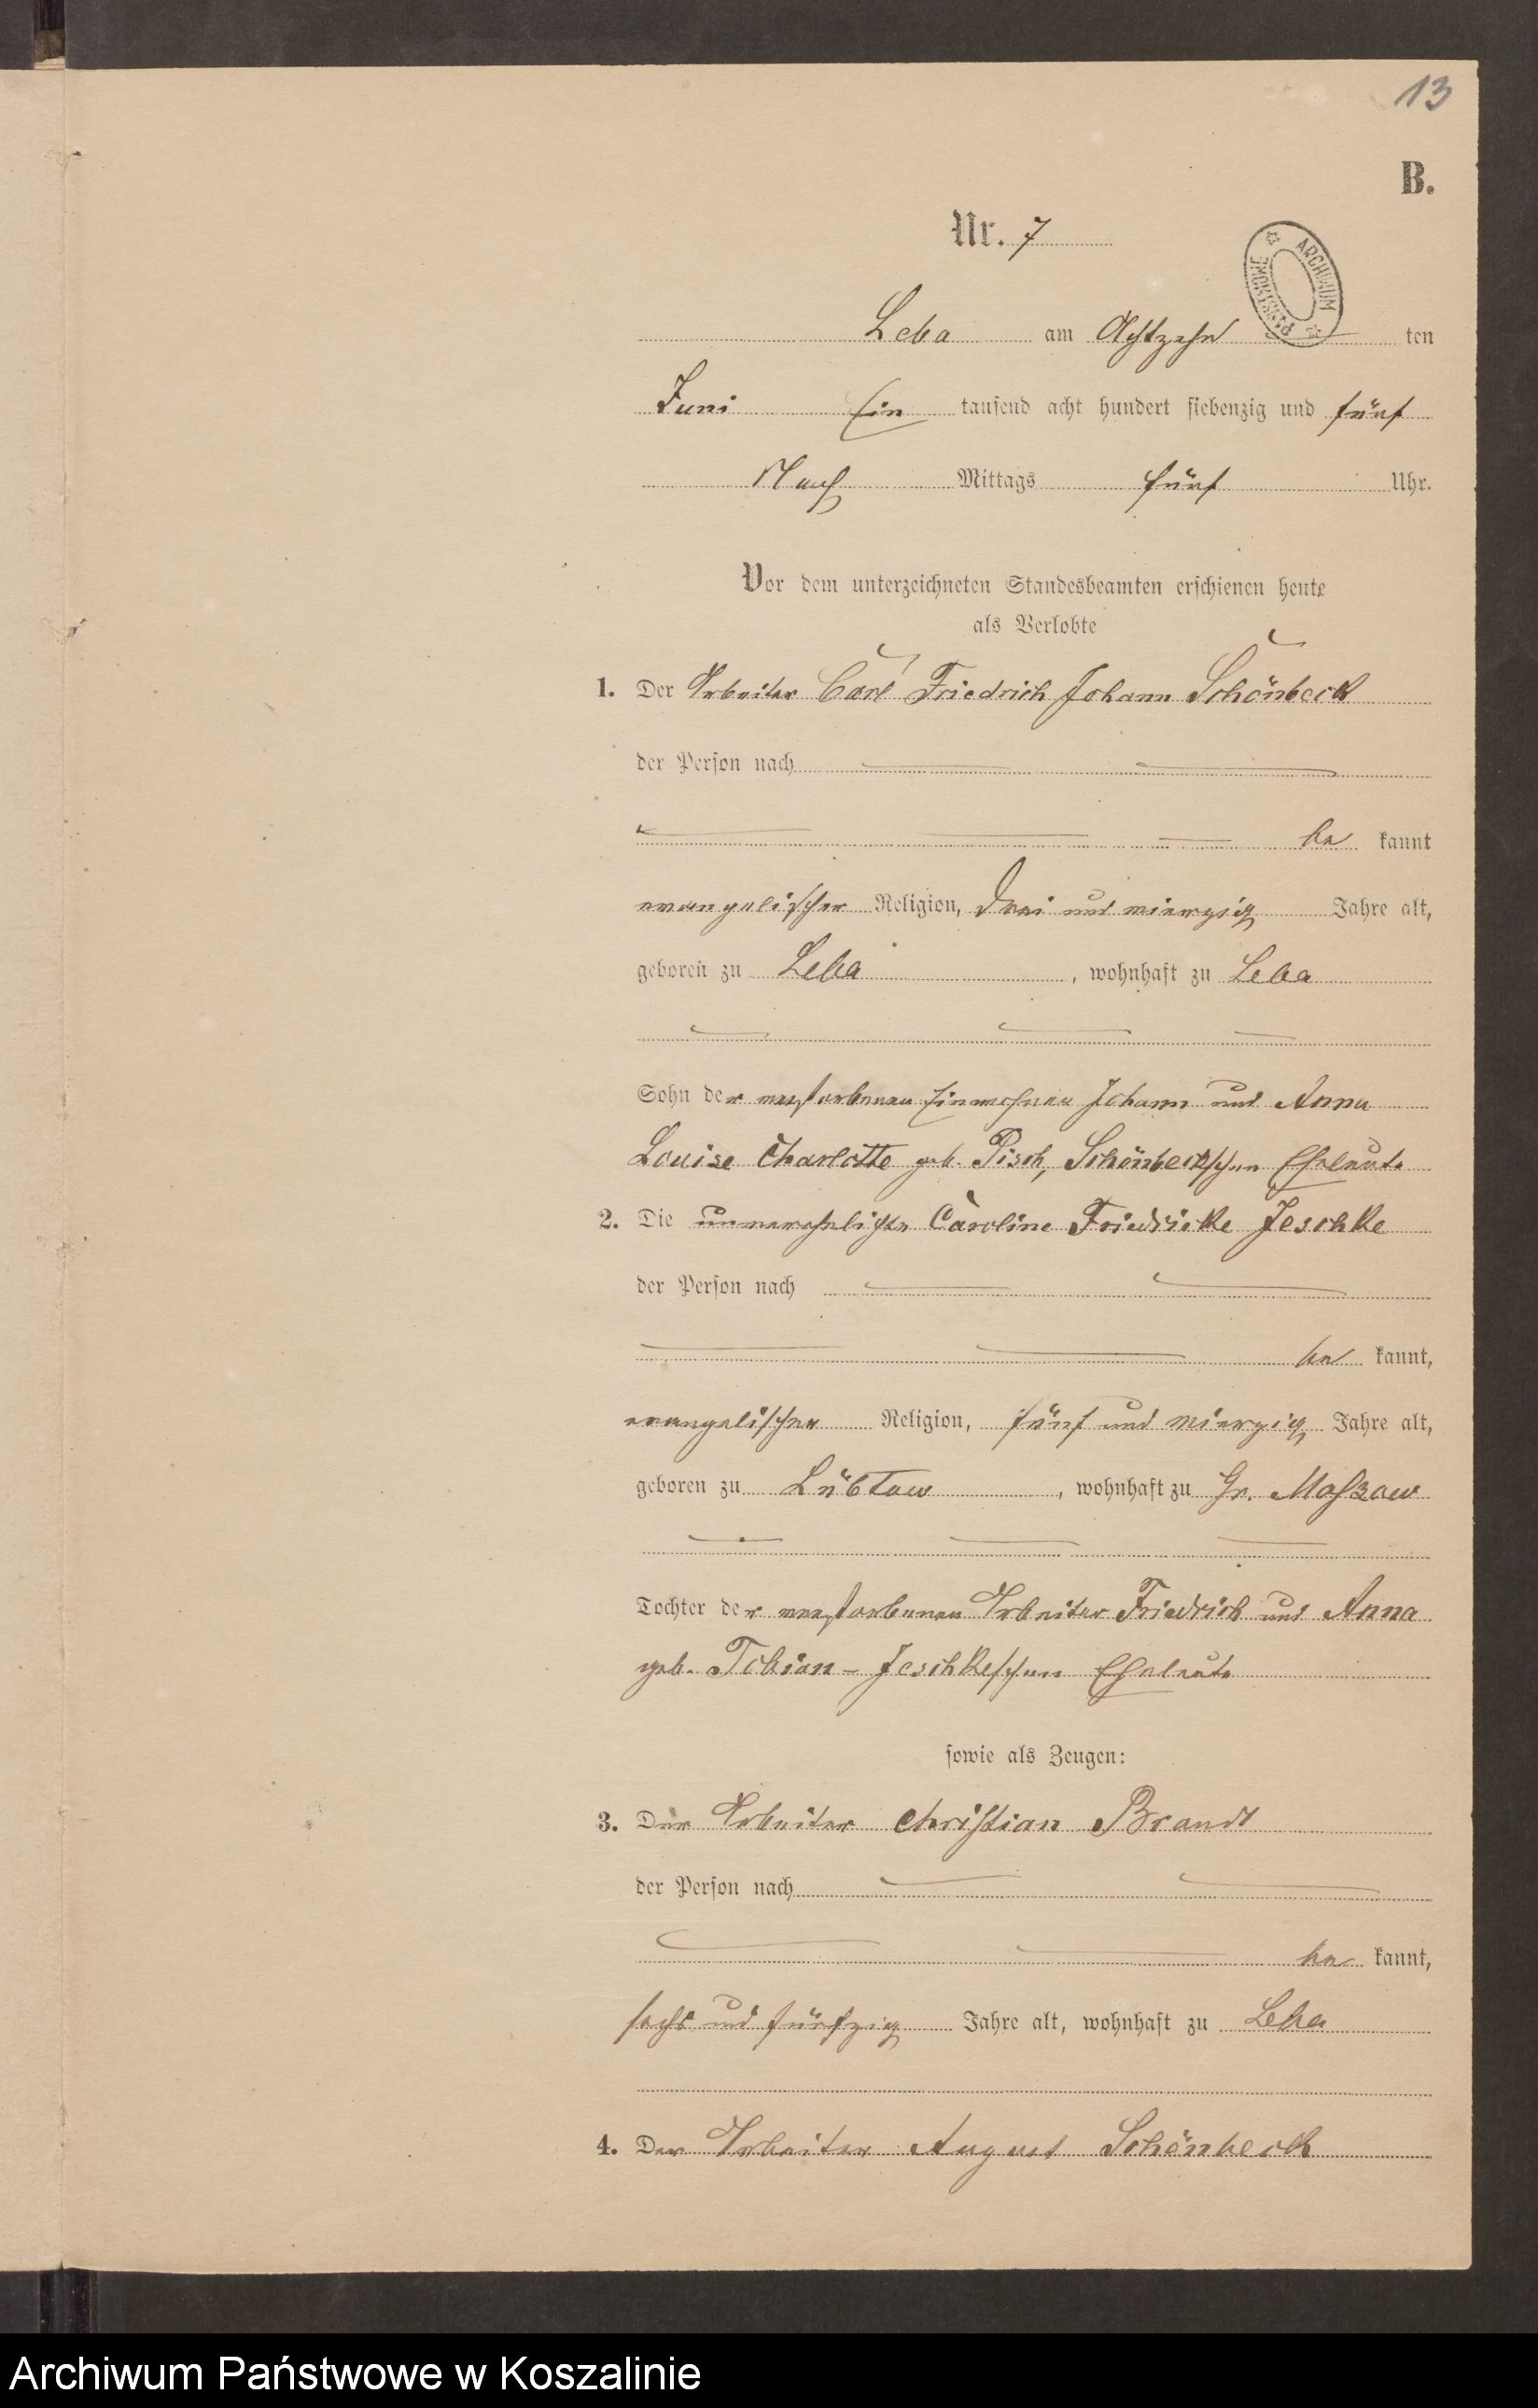 13
B.
Nr. 7
ARCHIWUM PAŃSTWOWE
Leba am Achtzehn ten
Juni Ein tausend acht hundert siebenzig und fünf
Nach Mittags fünf Uhr.
Vor dem unterzeichneten Standesbeamten erschienen heute
als Verlobte
1. Der Arbeiter Carl Friedrich Johann Schönbeck
der Person nach
be kannt
evangelischer Religion, drei und vierzig Jahre alt,
geboren zu Leba, wohnhaft zu Leba
Sohn der verstorbenen Einwohner Johann und Anna
Louise Charlotte geb. Pisch, Schönbeckschen Eheleute
2. Die unverehelichte Caroline Friedricke Jeschke
der Person nach
be kannt,
evangelischer Religion, fünf und vierzig Jahre alt,
geboren zu Lübtow, wohnhaft zu Gr. Masszow
Tochter der verstorbenen Arbeiter Friedrich und Anna
geb. Tobian - Jeschkeschen Eheleute
sowie als Zeugen:
3. Der Arbeiter Christian Brandt
der Person nach
be kannt,
sechs und fünfzig Jahre alt, wohnhaft zu Leba
4. Der Arbeiter August Schönbeck
Archiwum Państwowe w Koszalinie